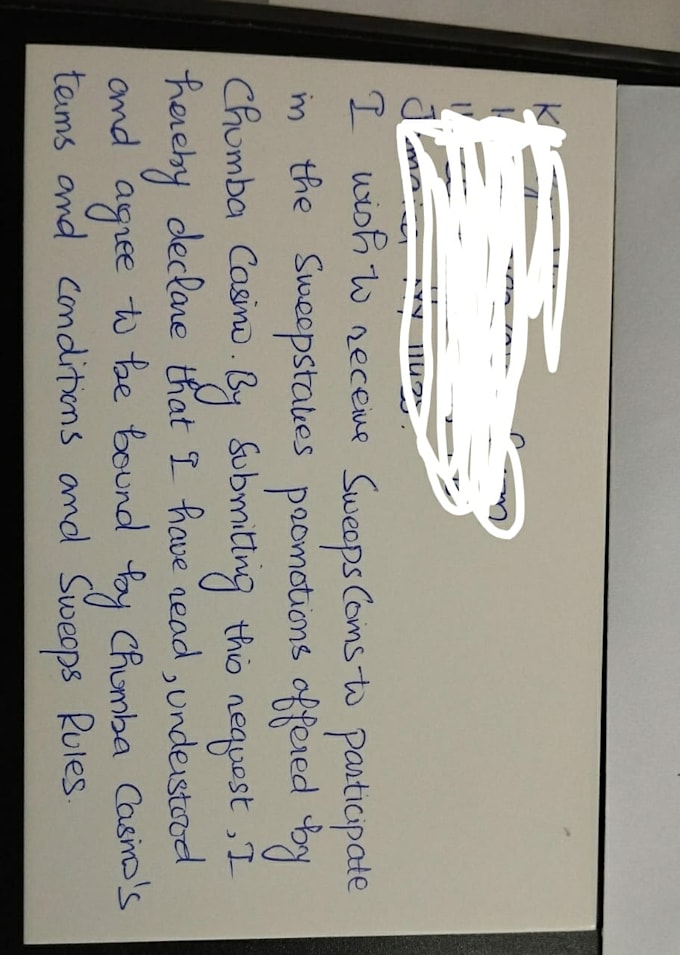 I wish to receive Sweeps Coins to participate
in the Sweepstakes promotions offered by
Chumba Casino. By Submitting this request, I
hereby declare that I have read, understood
and agree to be bound by Chumba Casino's
terms and Conditions and Sweeps Rules.